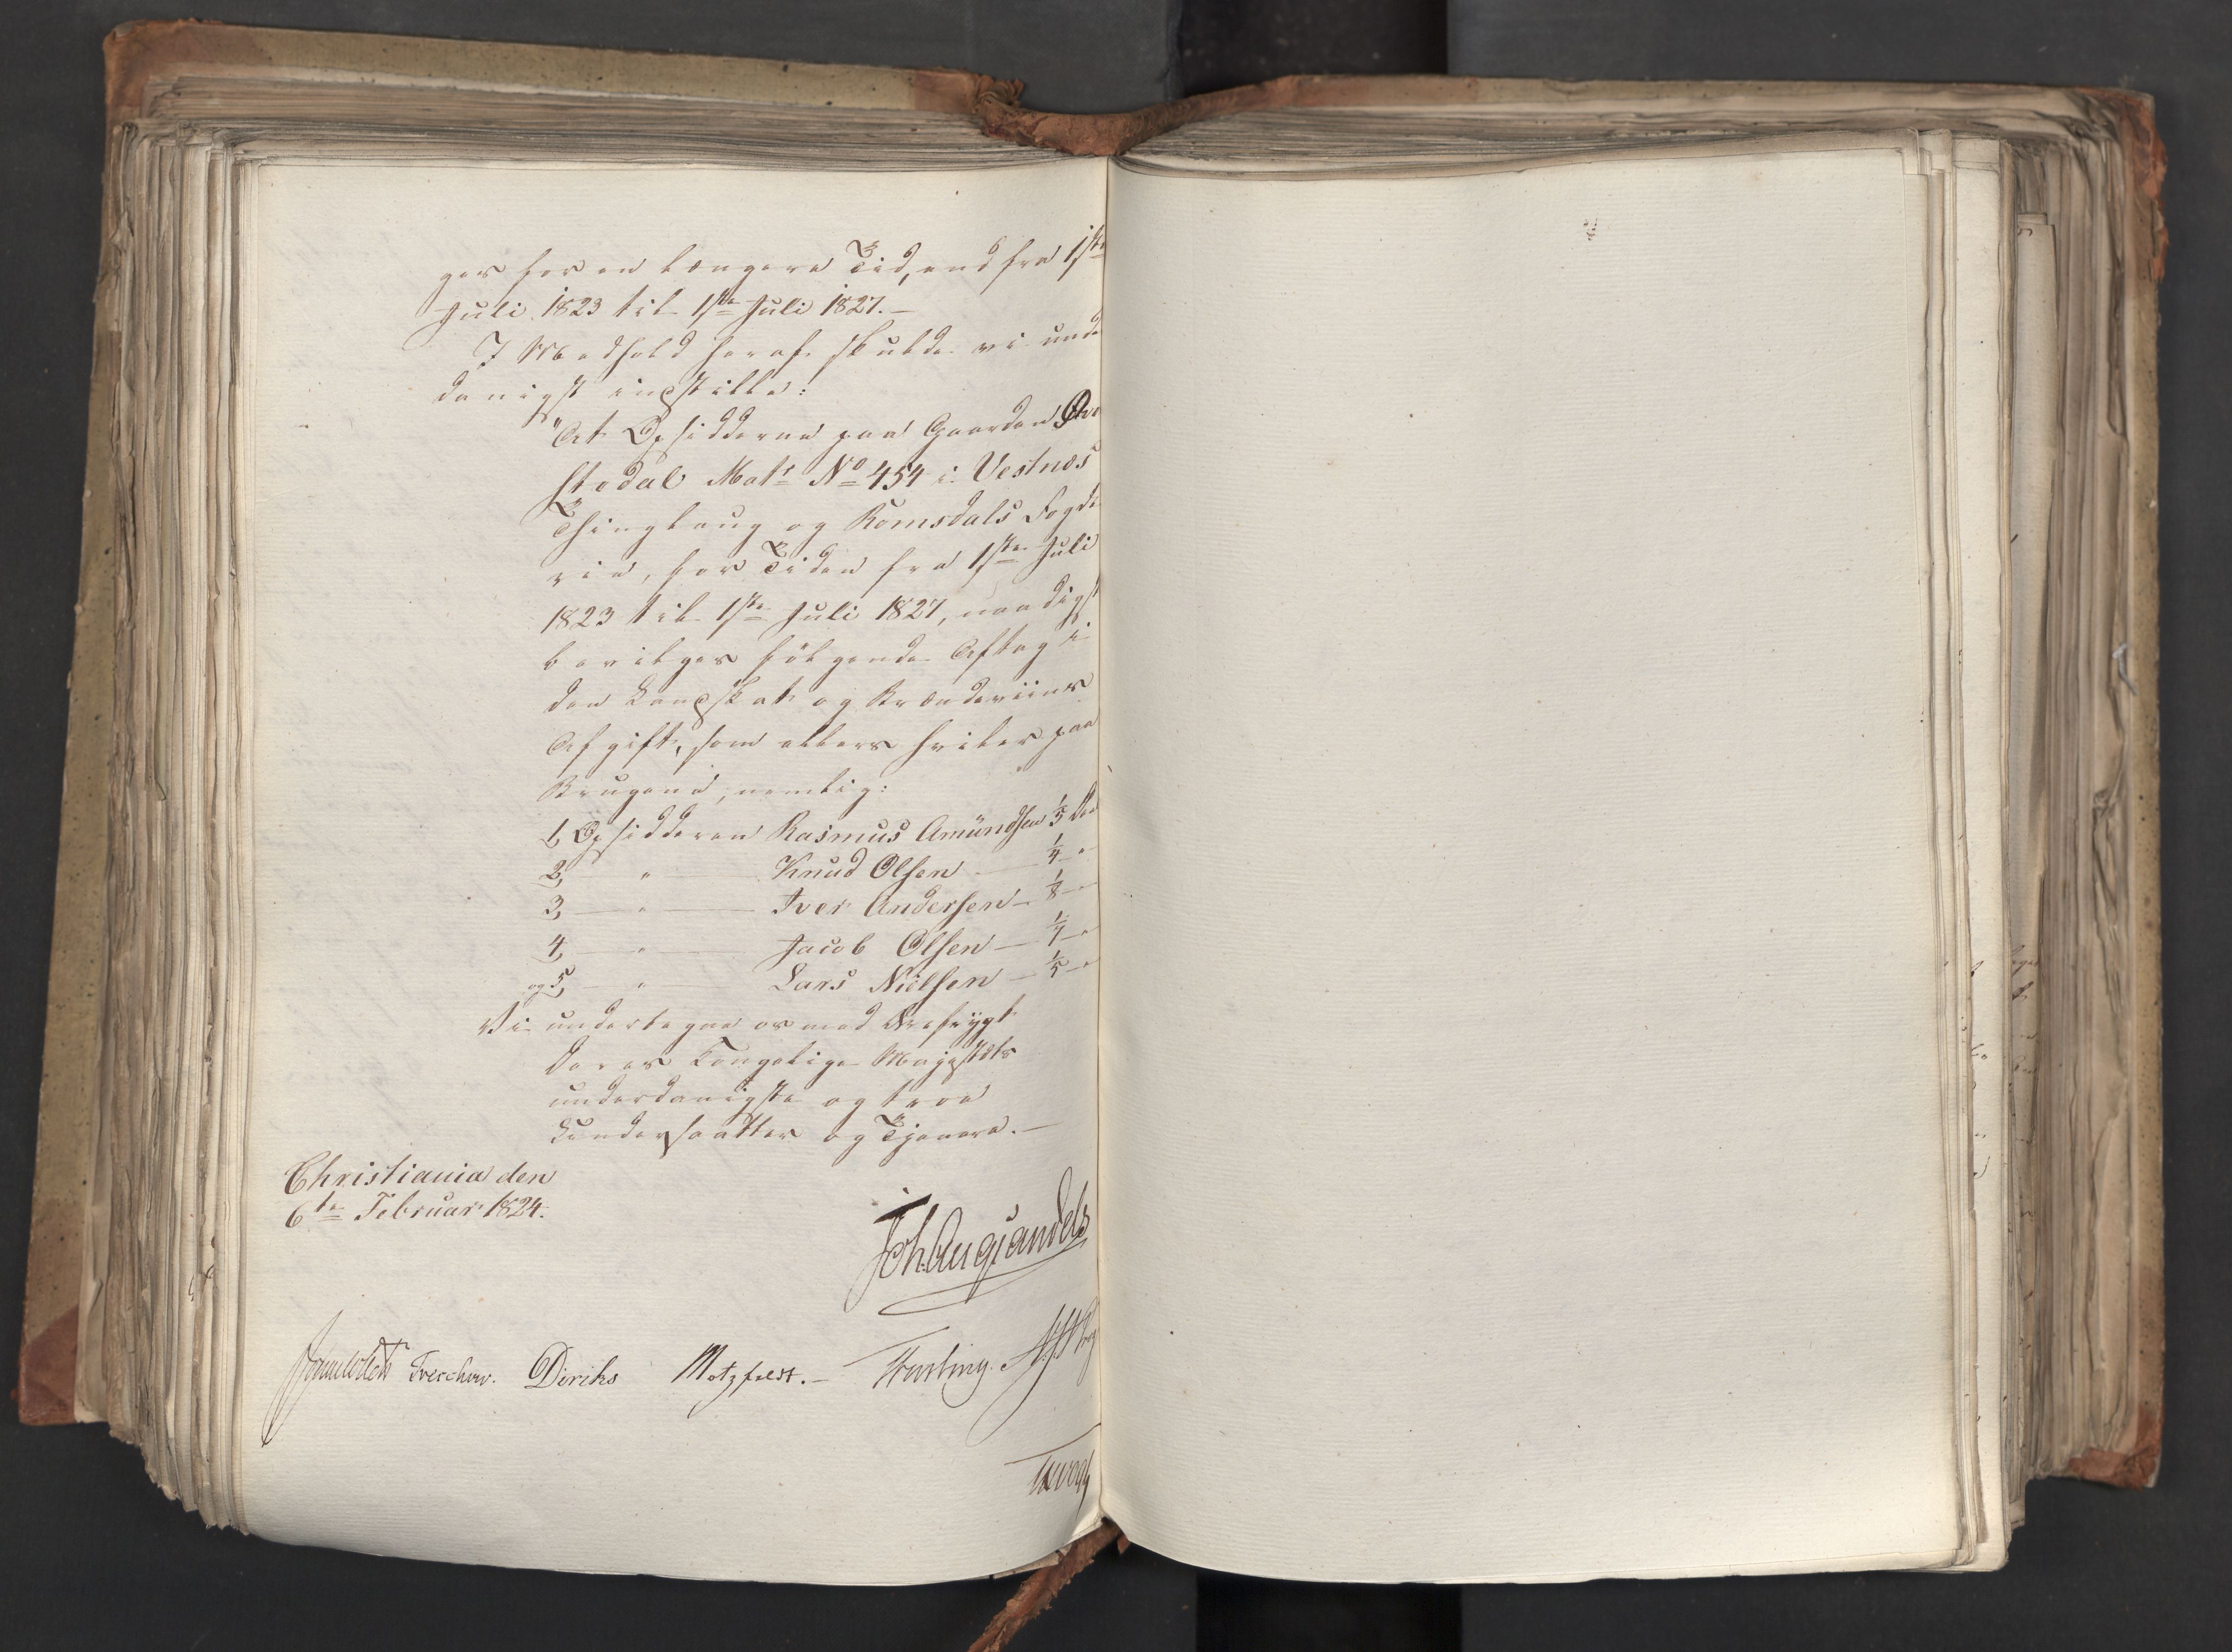 ges for en længere Tid, end fra 1ste
Juli 1823 til 1ste Juli 1827.–
I Medhold heraf skulde vi unde
danigst indstille:
"At Opsidderne paa Gaarden
Stodal Matr No 454 i Vestnes
Thinglaug og Romsdals Fogde
rie, for Tiden fra 1ste Juli
1823 til 1ste Juli 1827, naadigst
bevilges følgende Aftag i
den Landskat og Brændeviins
Afgift, som ellers hviler paa
Brugene, nemlig:
1, Opsidderen Rasmus Amundsen 1/5 Dee
2, — " — Knud Olsen — 1/4 "
3, — " — Iver Andersen – 1/8 – "
4, — " — Jacob Olsen — 1/4 – "
og 5, — " — Lars Nielsen — 1/5 – "
Vi undertegne os med Ærefrygt
Deres Kongelige Majestæts
underdanigste og troe
Undersaatter og Tjenere.–
Christiania den
6te Februar 1824.
Joh. Aug. Sandels
Sommerhielm Treschow. Diriks Motzfeldt.– Fasting.